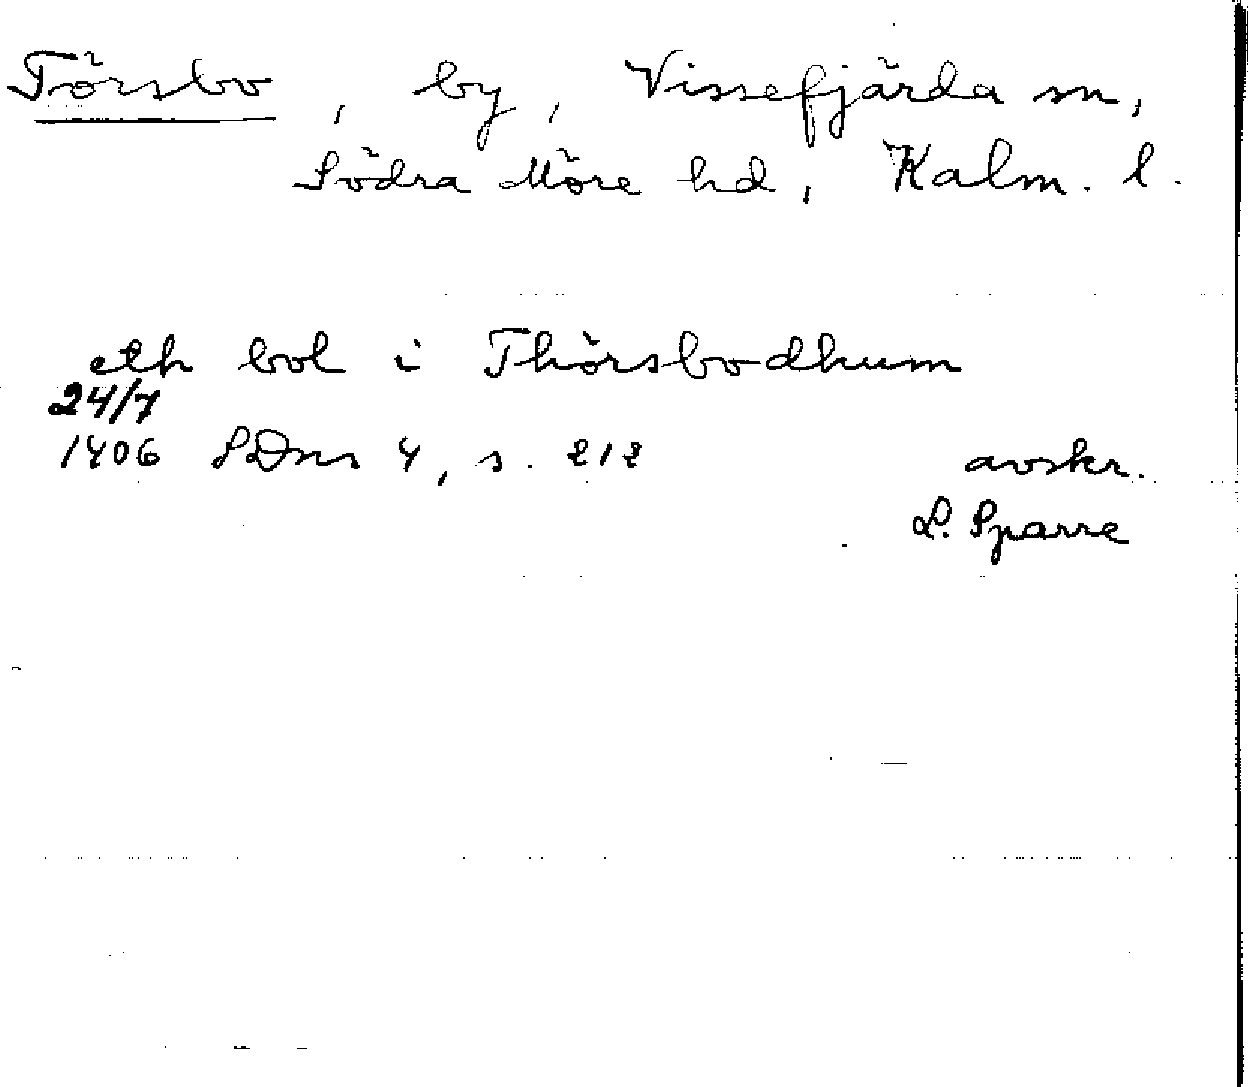 Törsbo, by, Vissefjärda sn,
Södra Möre hd, Kalm. l.
eth bol i Thörsbodhum
24/7
1406 SDns 4, s. 212 avskr.
L. Sparre